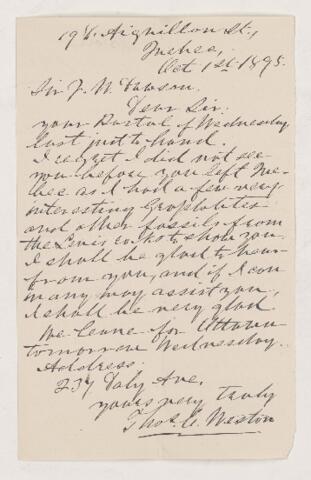 194 Aiguillon St.,
Quebec,
Oct 1st 1895.
Sir J. W. Dawson.
Dear Sir.
your Postal of Wednesday
last just to hand.
I regret I did not see
you before you left Que-
bec as I had a few very
interesting Graptolites
and other fossils from
the Levis rocks to show you
I shall be glad to hear
from you, and if I can
in any way assist you,
I shall be very glad.
We leave for Ottawa
tomorrow Wednesday.
Address.
237 Daly Ave.
yours very truly
Thos. C. Weston